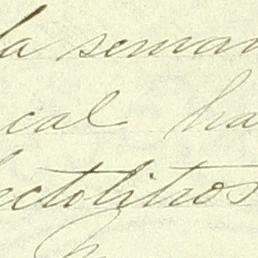 la seman
cal ha
hectolitros